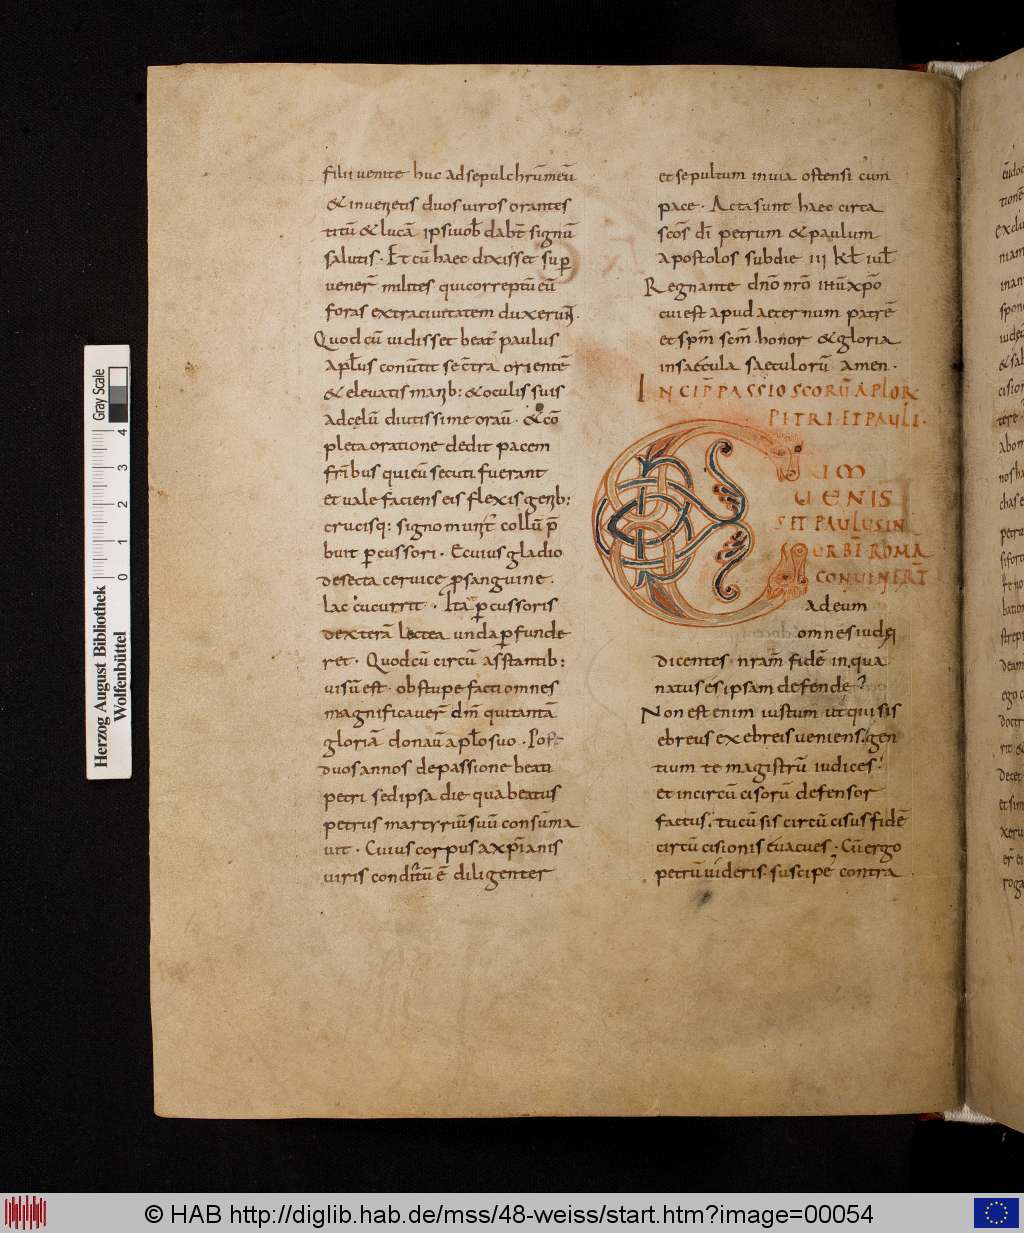 filii uenite huc ad sepulchrū meū
& inuenetis duos uiros orantes
titū & lucā ipsi uob̄ dabt̄ signū
salutis · Et cū haec dixisset sup̄
uener̄ milites qui correptū eū
foras extra ciuitatem duxerunt ·
Quod cū uidisset beat᷑ paulus
apl̄us conūtit se c̄tra orientē
& eleuatis manib: & oculis suis
ad celū diutissime orau̅ · & cō
pleta oratione dedit pacem
frīb us qui eū secuti fuerant
et uale faciens eis flexis genib:
crucisq: signo munit᷑ collū p̄
buit ꝑcussori · E cuius gladio
desecta ceruice ꝓ sanguine ·
lac cucurrit · Ita ꝑcussoris
dexterā lectea unda ꝑfunde
ret · Quod cū circū asstantib:
uisū est · obstupefacti omnes
magnificauer̄ dm̄ qui tantā
gloriā donau̅ aplo suo · Post
duos annos de passione beati
petri sed ipsa die qua beatus
petrus martyriū suū consūma
uit · Cuius corpus a xp̄ianis
uiris conditū ē diligenter
et sepultum in uia ostensi cum
pace · Acta sunt haec circa
sc̄os dī petrum & paulum
apostolos sub die iii kł iuł
Regnante dn̄o nr̄o ihū xp̄o
cui est apud aeternum patrē
et spm̄ scm̄ honor & gloria
in saecula saeculorū amen ·
INCIP̄ PASSIO SCORŪ APLOR
PETRI ET PAULI ·
C UM
UENIS
SET PAULUS IN
URBĒ ROMA
CONUENER̄T
ad eum
omnes iudęi
dicentes · nr̄am fidē in qua
natus es ipsam defende ?
Non est enim iustum ut qui sis
ebreus ex ebreis ueniens, gen
tium te magistrū iudices ·
et incircūcisorū defensor
factus, tu cū sis circūcisus fidē
circūcisionis euacues · Cū ergo
petrū uideris · suscipe contra
Herzog August Bibliothek
Wolfenbüttel
0 1 2 3 4
Gray Scale
© HAB http://diglib.hab.de/mss/48-weiss/start.htm?image=00054